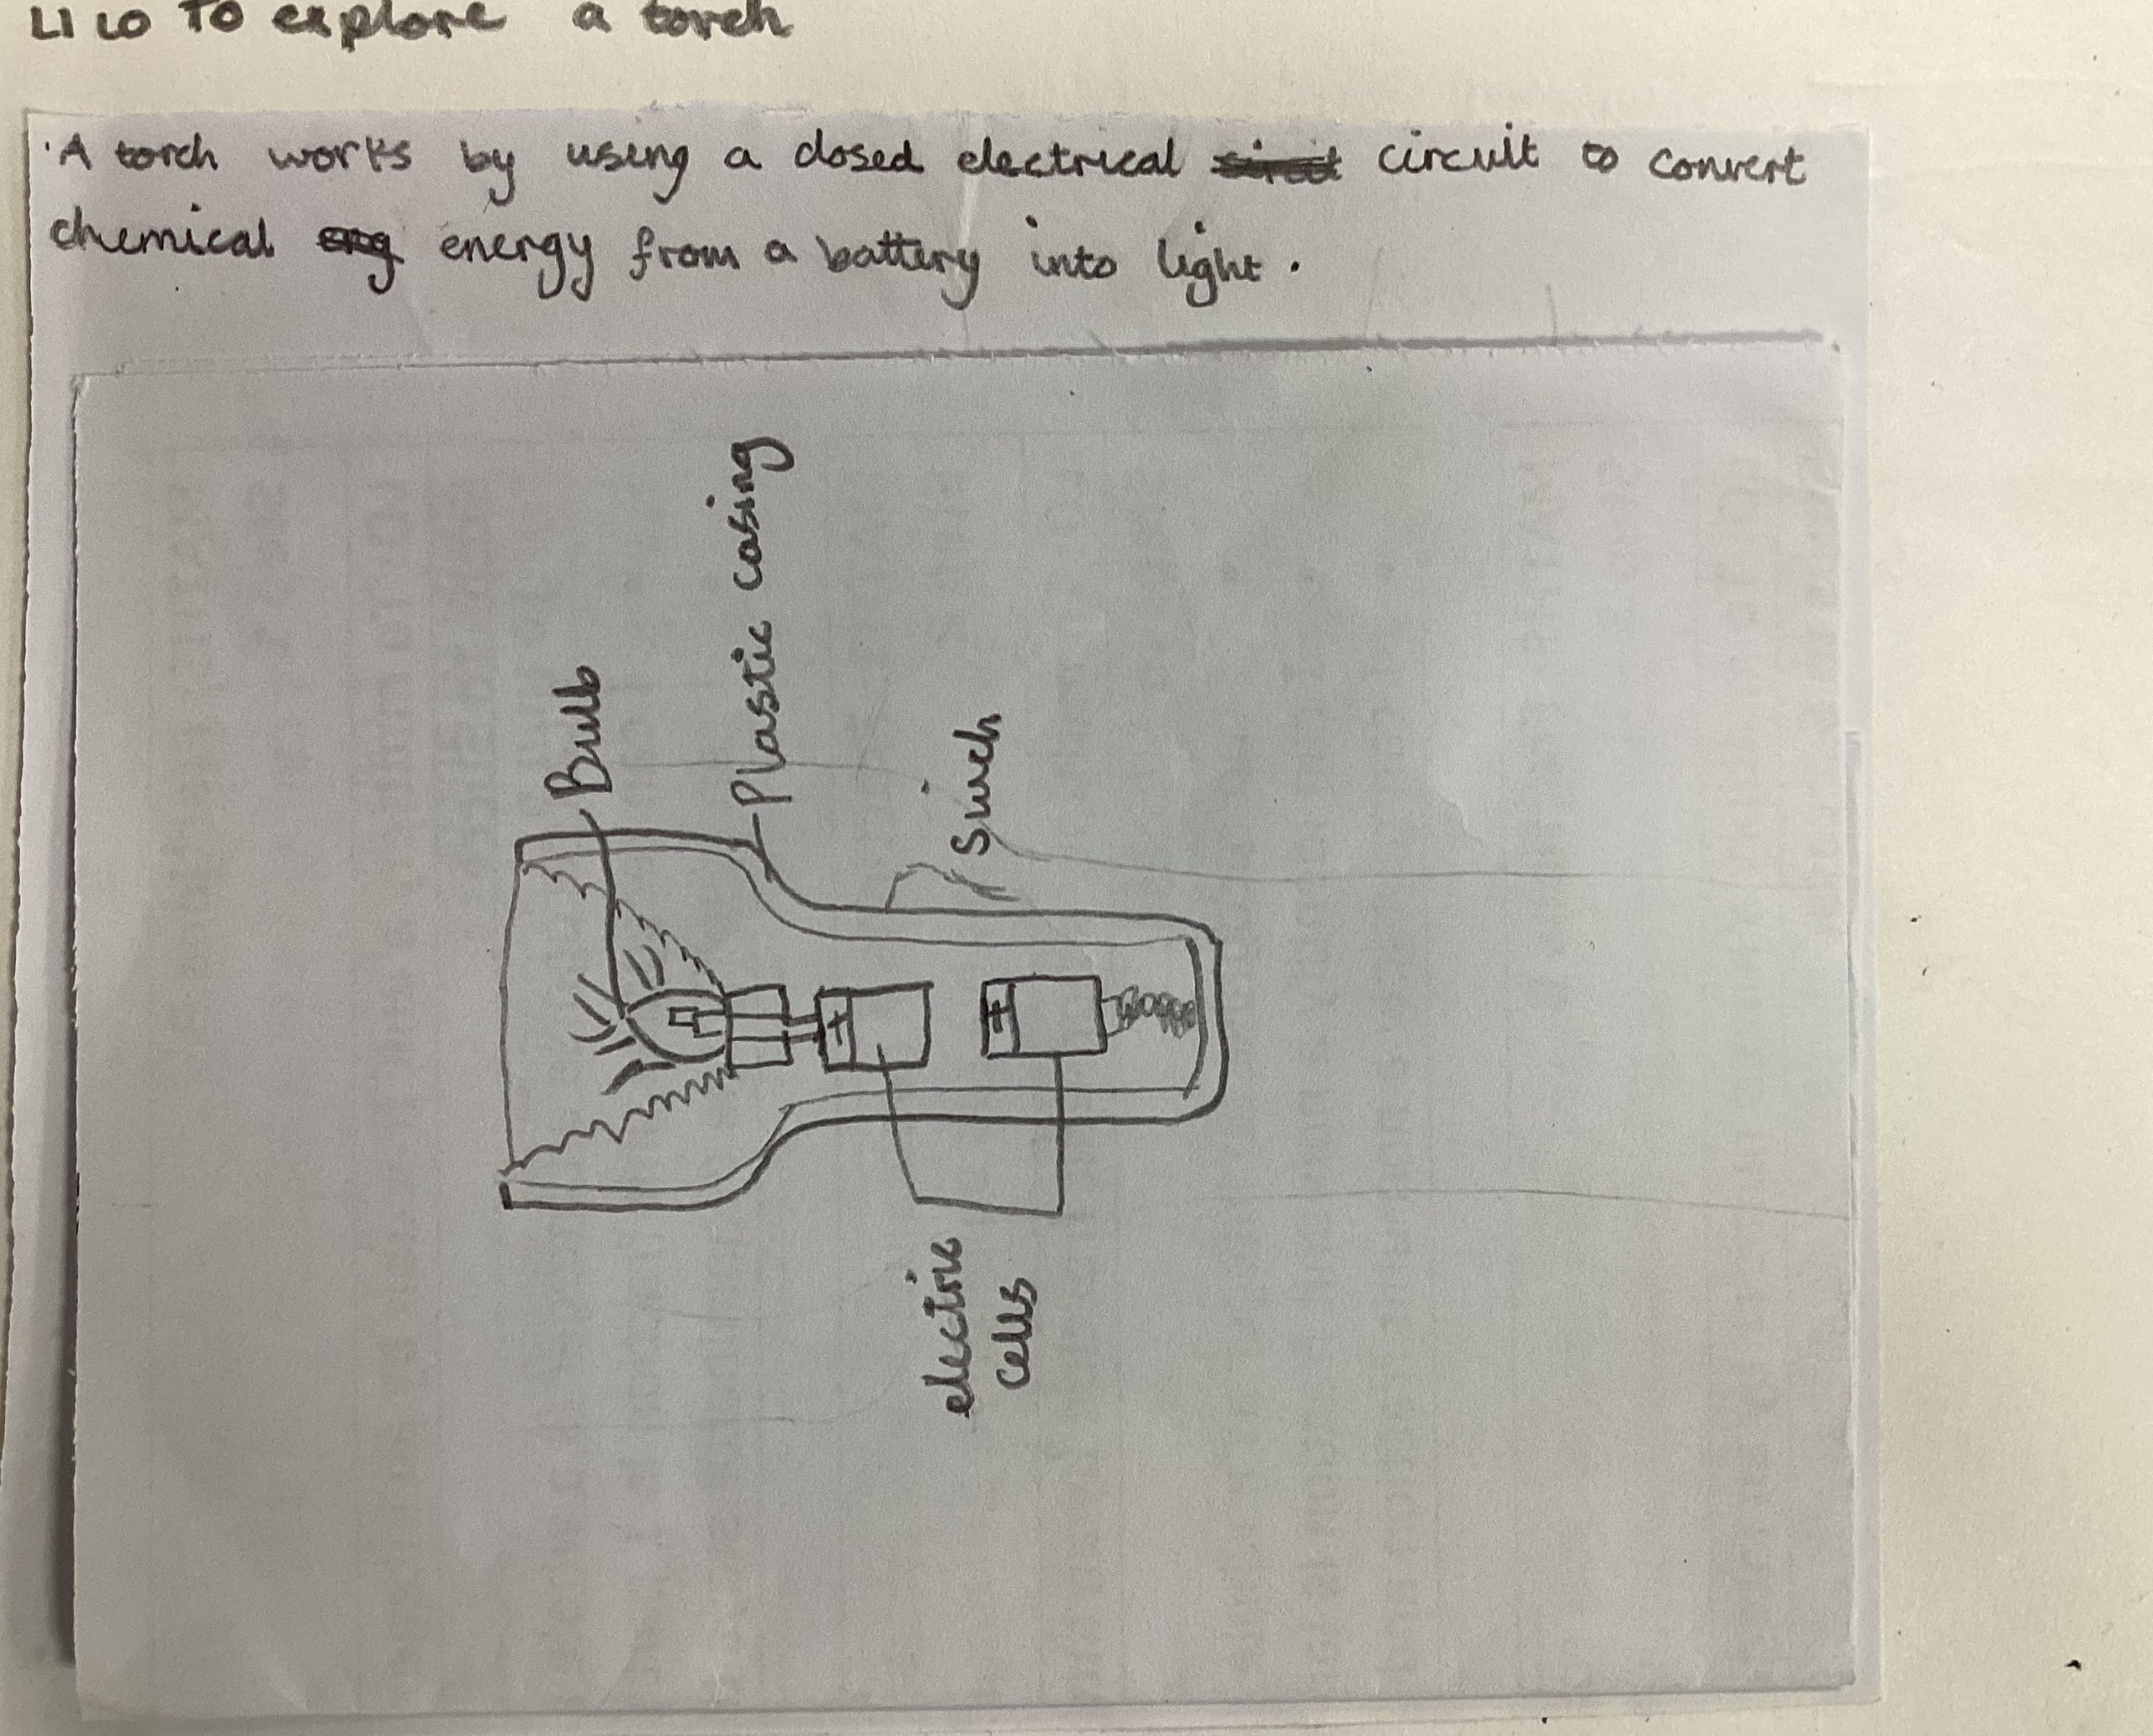 To explore a torch
A torch works by using a closed electrical circuit to convert
chemical energy from a battery into light.
Bulb
Plastic casing
Swich
electric
cells